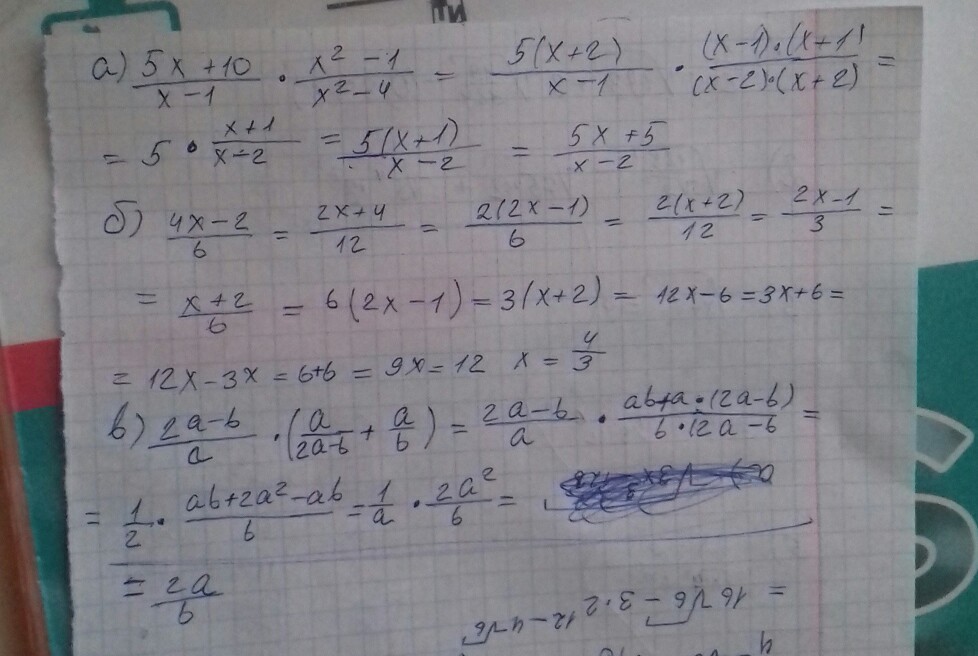 а) (5x+10)/(x-1) · (x²-1)/(x²-4) = 5(x+2)/(x-1) · (x-1)·(x+1)/(x-2)·(x+2) =
= 5 · (x+1)/(x-2) = 5(x+1)/(x-2) = (5x+5)/(x-2)
б) (4x-2)/6 = (2x+4)/12 = 2(2x-1)/6 = 2(x+2)/12 = (2x-1)/3 =
= (x+2)/6 = 6(2x-1) = 3(x+2) = 12x-6 = 3x+6 =
= 12x-3x = 6+6 = 9x = 12 x = 4/3
в) (2a-b)/a · (a/(2a-b) + a/b) = (2a-b)/a · (ab+a·(2a-b))/(b·(2a-b) =
= 1/2 · (ab+2a²-ab)/b = 1/a · 2a²/b =
= 2a/b
= 16√6 - 3·2
12-4√6